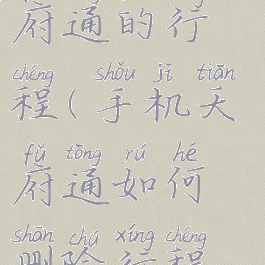 府通的行
chéng shǒu jī tiān
程(手机天
fǔ tōng rú hé
府通如何
shān chú xíng chéng
删除行程